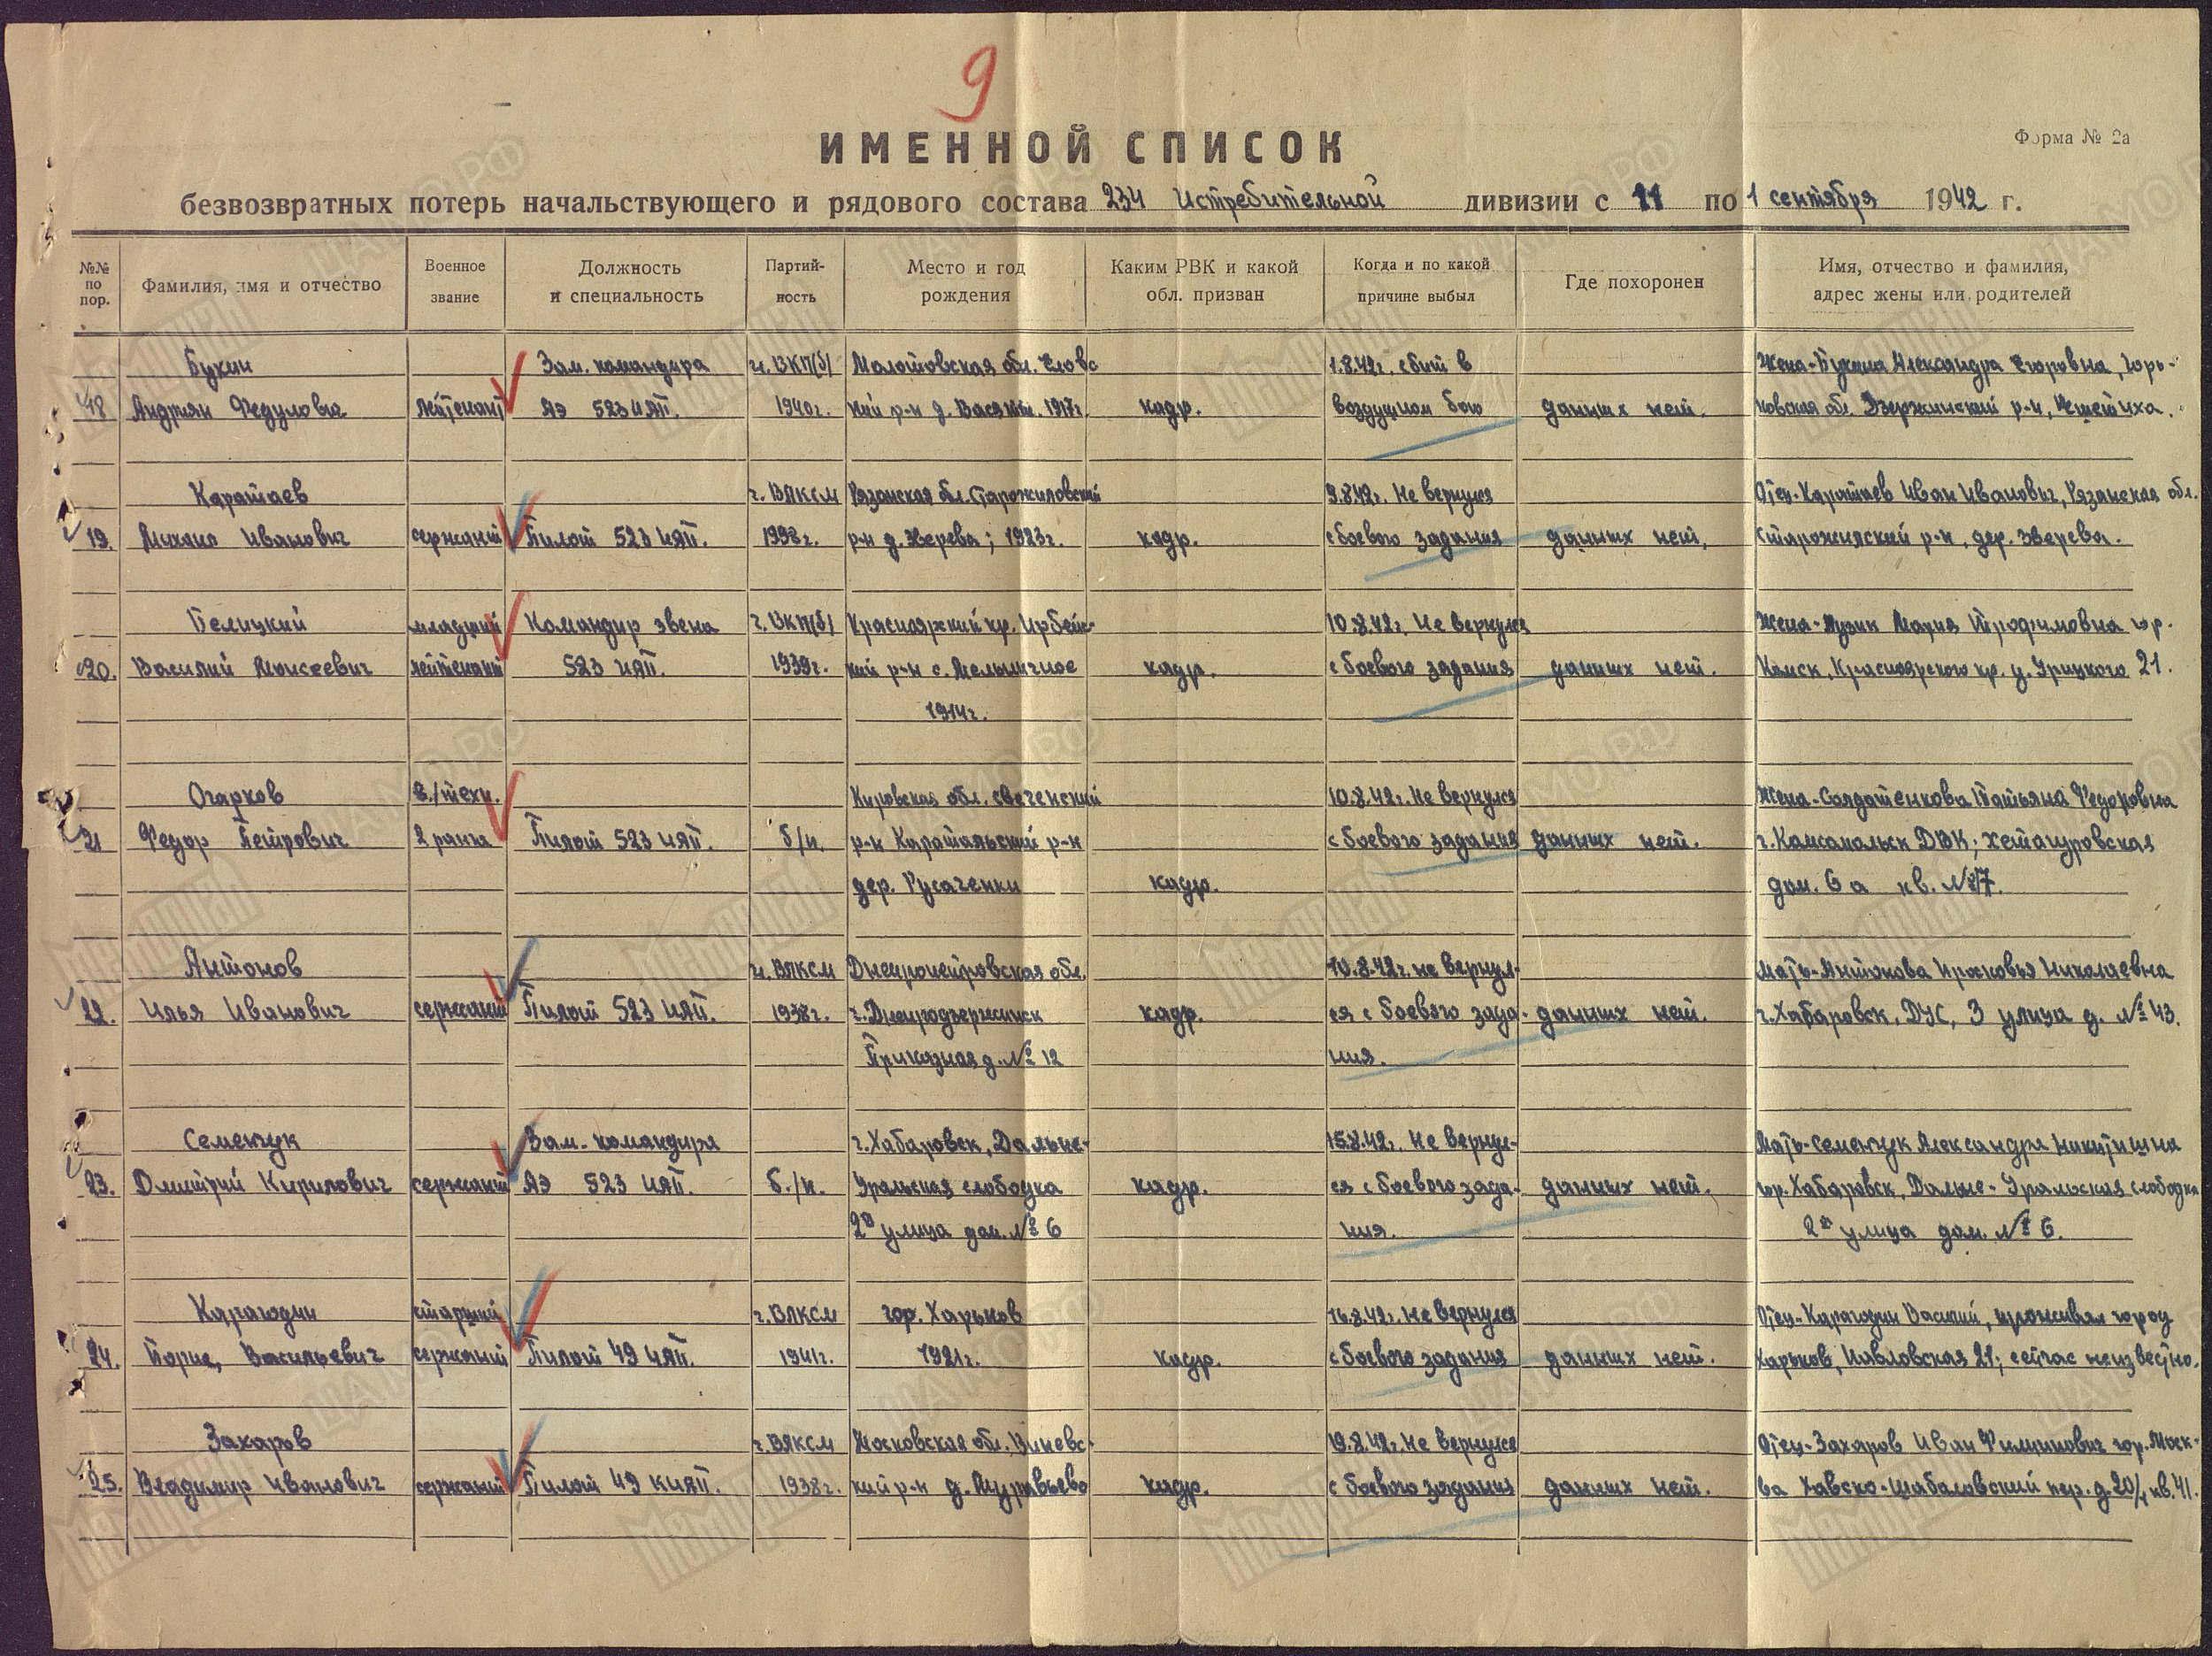 9
ИМЕННОЙ СПИСОК
Форма № 2а
безвозвратных потерь начальствующего и рядового состава 234 Истребительной дивизии с 11 по 1 сентября 1942 г.
№№ по пор.
Фамилия, имя и отчество
Военное звание
Должность и специальность
Партий-ность
Место и год рождения
Каким РВК и какой обл. призван
Когда и по какой причине выбыл
Где похоронен
Имя, отчество и фамилия, адрес жены или родителей
Букин Зам. командира ч. ВКП(б) Молотовская обл. Еловс 1.8.42г. сбит в Жена-Букина Александра Егоровна, Горь-
18 Андриян Федулович лейтенант АЭ 523 ИАП. 1940г. кий р-н д. 1917г. кадр. воздушном бою данных нет. ковская обл. Дзержинский р-н,
Каратаев ч. ВЛКСМ Рязанская обл. Старожиловский 9.8.42г. Не вернулся Отец-Каратаев Иван Иванович, Рязанская обл.
19. Михаил Иванович сержант Пилот 523 ИАП. р-н д. 1923г. кадр. с боевого задания данных нет. р-н, дер. Зверева.
Белицкий младший Командир звена ч. ВКП(б) Красноярский кр. Ирбейс- 10.8.42г. Не вернулся Жена- Мария Трофимовна гор.
20. Василий Моисеевич лейтенант 523 ИАП. 1939г. кий р-н с. Мельничное кадр. с боевого задания данных нет. Канск, Красноярского кр. у. Урицкого 21.
1914г.
Огарков в./техн. Кировская обл. Свеченский 10.8.42г. Не вернулся Жена-Солдатенкова Татьяна Федоровна
21 Федор Петрович 2 ранга Пилот 523 ИАП. б/п. р-н р-н с боевого задания данных нет. г. Комсомольск ДВК; Хетагуровская
дер. Русаченки кадр. дом. 6а кв. №
Антонов ч. ВЛКСМ Днепропетровская обл. 10.8.42г. не вернул- Мать-Антонова Прасковья Николаевна
22. Илья Иванович сержант Пилот 523 ИАП. 1938г. г. Днепродзержинск кадр. ся с боевого зада- данных нет. г. Хабаровск, ДУС, 3 улица д. № 43.
Приказная д. № 12 ния.
Семенчук Зам. командира г. Хабаровск, Дальне- 15.8.42г. Не вернул- Мать-Семенчук Александра Никитишна
23. Дмитрий Кирилович сержант АЭ 523 ИАП. б./п. Уральская слободка кадр. ся с боевого зада- данных нет. гор. Хабаровск, Дальне-Уральская слободка
2я улица дом. № 6 ния. 2я улица дом. № 6.
Карагодин старший ч. ВЛКСМ гор. Харьков 16.8.42г. Не вернулся Отец-Карагодин Василий, проживал город
24. Борис, Васильевич сержант Пилот 49 ИАП. 1941г. 1921г. кадр. с боевого задания данных нет. Харьков, 21; сейчас неизвестно.
Захаров ч. ВЛКСМ Московская обл. Виневс- 19.8.42г. Не вернулся Отец-Захаров Иван Филиппович гор. Моск-
25. Владимир Иванович сержант Пилот 49 КИАП. 1938г. кий р-н д. Муравьево кадр. с боевого задания данных нет. ва Хавско-Шабаловский пер. д. 20/4 кв. 41.